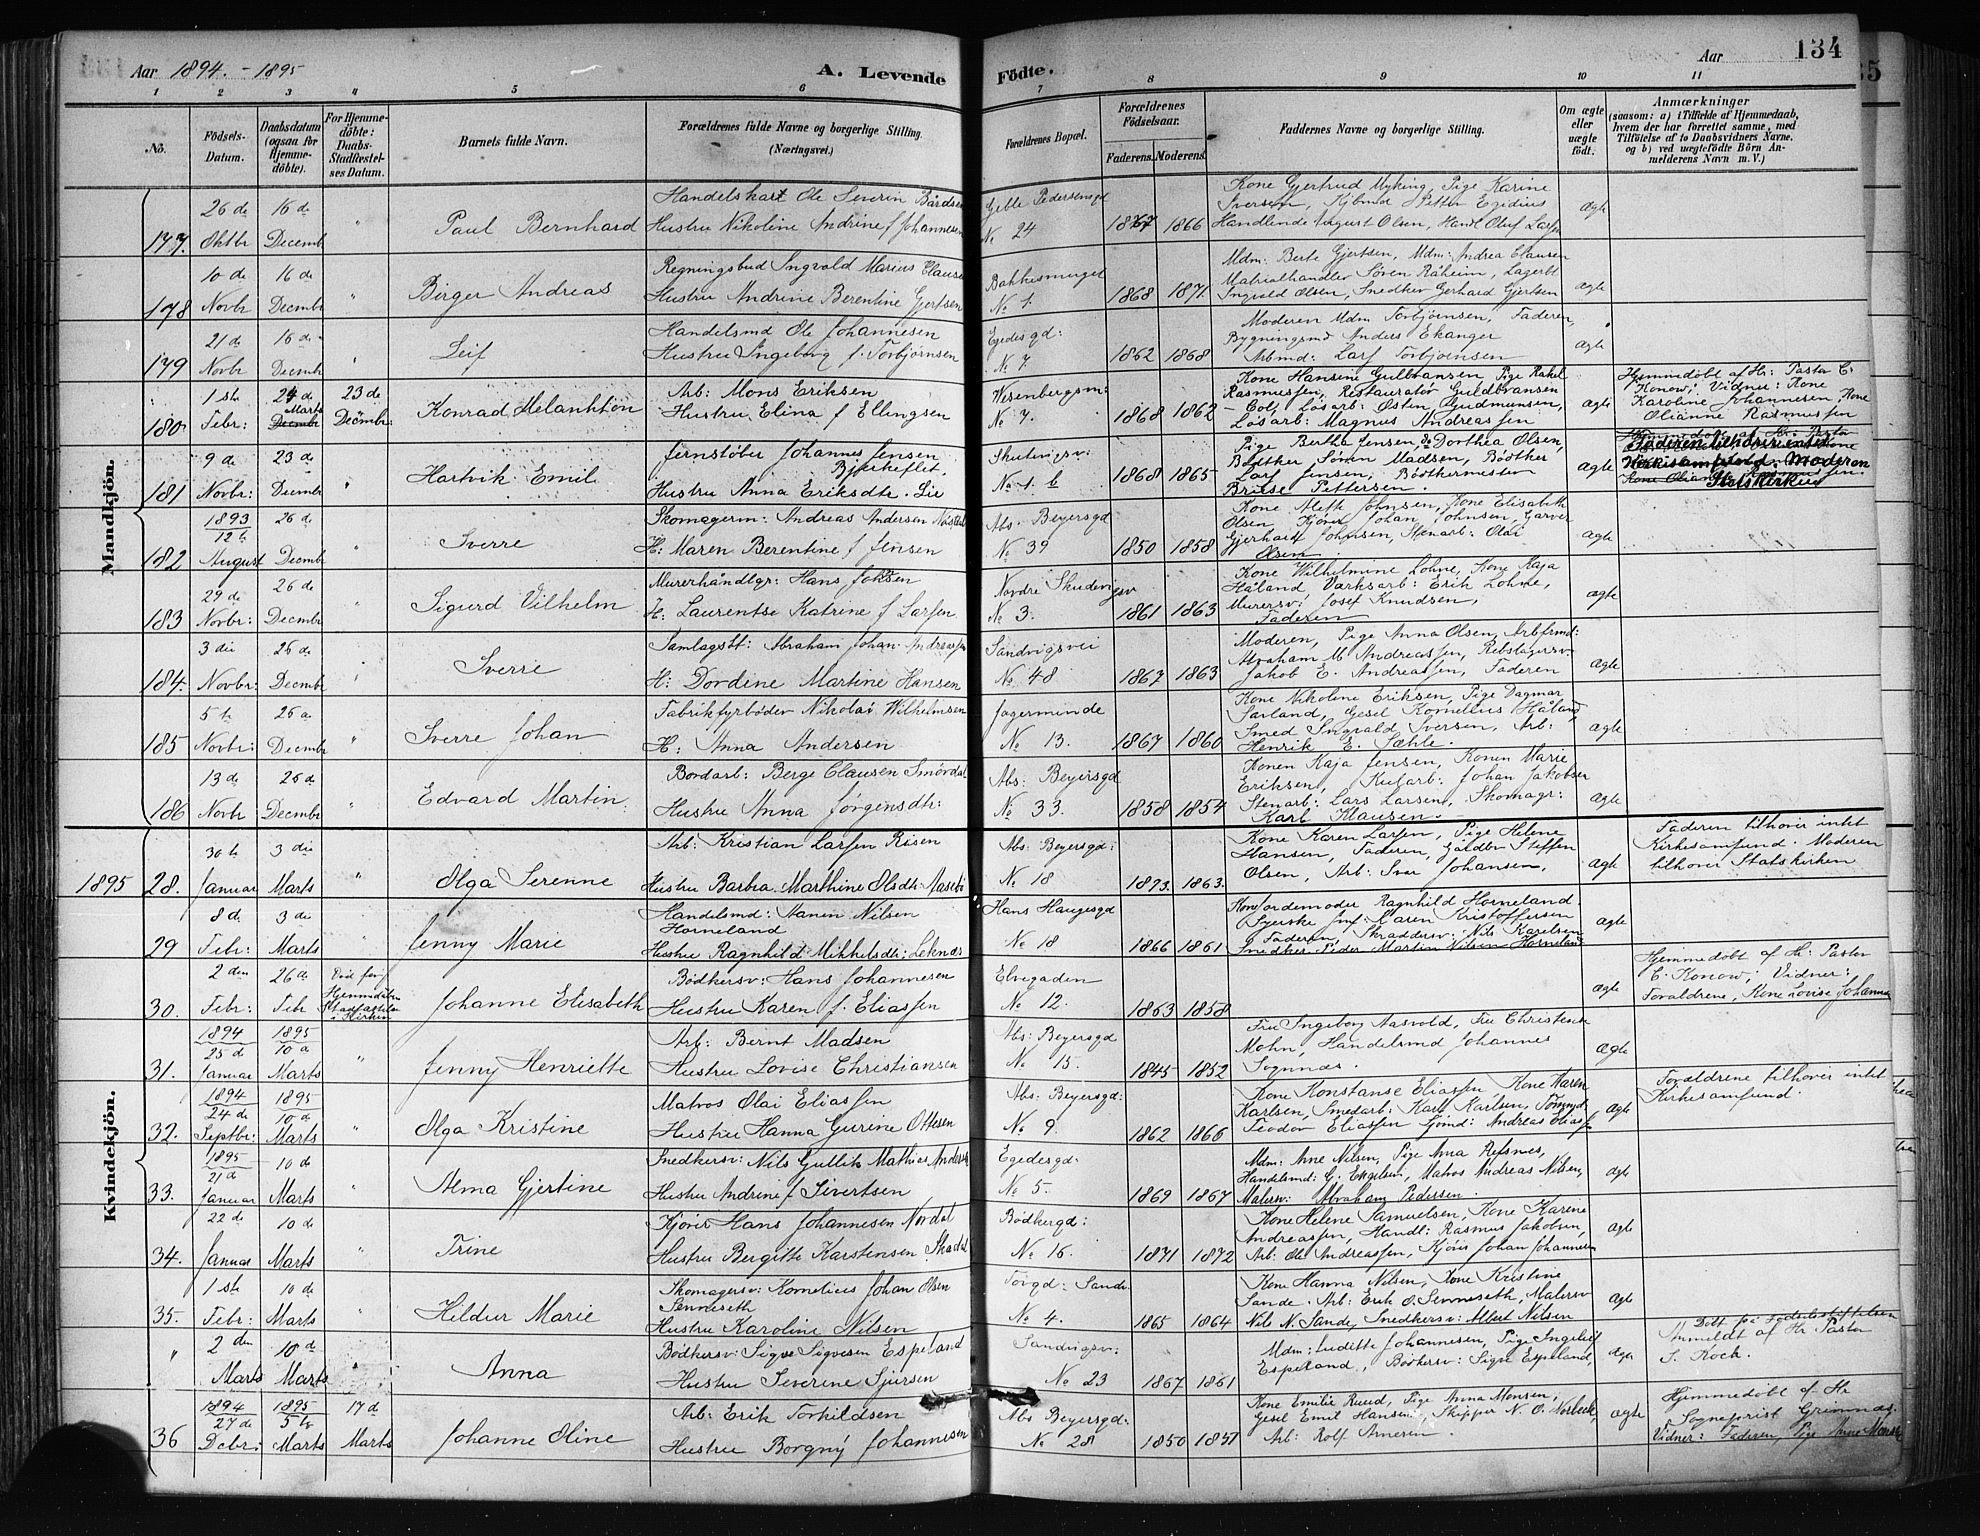 134
Aar 1894. - 1895
A. Levende Fødte.
Aar
1 2 3 4 5 6 7 8 9 10 11
No.
Födsels-Datum.
Daabsdatum (ogsaa for Hjemme-döbte).
For Hjemme-döbte: Daabs-Stadfæstel-ses Datum.
Barnets fulde Navn.
Forældrenes fulde Navne og borgerlige Stilling. (Næringsvei.)
Forældrenes Bopæl.
Forældrenes Födselsaar.
Faderens. Moderens.
Faddernes Navne og borgerlige Stilling.
Om ægte eller uægte födt.
Anmærkninger
(saasom: a) i Tilfælde af Hjemmedaab, hvem der har forrettet samme, med Tilföielse af to Daabsvidners Navne, og b) ved uægtefödte Börn An-melderens Navn m. V.)
Mandkjön.
177. 26 de Oktbr 16 de Decemb " Paul Bernhard
Handelskarl Ole Severin Bårdsen
Hustru Nikoline Andrine f Johannesen
Gelle Pedersensgd No 24 1867 1866
Kone Gjertrud Myking, Pige Karine
Iversen, Kjbmd Petter Egidius
Handlende August Olsen, Handl Oluf Larsen
ægte
178 10 de Novbr 16 de Decmbr " Birger Andreas
Regningsbud Ingvald Marius Clausen
Hustru Andrine Berentine Gjertsen
Bakkesmuget No 1. 1868 1871.
Mdm: Berte Gjertsen, Mdm: Andrea Clausen
Matrialhandler Søren Råheim, Lagerbt
Ingvald Olsen, Snedker Gerhard Gjertsen
ægte
179 21 de Novbr 16 de Decmb " Leif
Handelsmd Ole Johannesen
Hustru Ingeborg f. Torbjørnsen
Egedesgd: No 7. 1862 1868
Moderen Mdm Torbjoensen, Faderen,
Bygningsmd Anders Ekanger
Arbmd: Lars Torbjoensen
ægte
180 1 ste Febr: 24 de Marts 23 de Decmbr: Konrad Melankton
Arb: Mons Eriksen
Hustru Elina f Ellingsen
Wesenbergsm: No 7. 1868 1862
Kone Hansine Gulbransen Pige Rakel
Rasmussen, Restauratør Guldbransen
Løsarb: Østen Gudmunsen,
Løsarb: Magnus Andreassen
ægte
Hjemmedøbt af Hr: Pastor C.
Konow; Vidner: Kone
Karoline Johannesen, Kone
Olianne Rasmussen
181 9 de Novbr: 23 de Decmbr " Hartvik Emil
Jernstøber Johannes Jensen
Bjerkeflet.
Hustru Anna Eriksdtr. Lie
Skutevigsv: No 1 b 1868 1865
Pige Bertha Jensen, do Dorthea Olsen,
Bødtker Søren Madsen, Bødtker
Lars Jensen, Bødtkermester
Pettersen
ægte
Faderen tilhører intet
Kirkesamfund. Moderen
Statskirken
182 1893 12 te August 26 de Decmbr Sverre
Skomagerm: Andreas Andersen
H: Maren Berentine f Jensen
Abs. Beyersgd No 39 1850 1858
Johnsen, Kone Elisabeth
Olsen, Kjører Johan Johnsen, Garver
Gjerhard Johnsen, Stenarb: Olai
Olsen
ægte
183 29 de Novbr: 26 de Decmbr " Sigurd Vilhelm
Murerhåndlgr: Hans
H: Laurentse Katrine f Larsen
Nordre Skudevigsv No 3. 1861 1863
Kone Wilhelmine Lohne, Kone Kaja
Håland, Værksarb: Erik Lohne,
Murersv: Josef Knudsen,
Faderen
ægte
184. 3 die Novbr: 26 de Decmbr " Sverre
Samlagsbt: Abraham Johan Andreassen
H: Dordine Martine Hansen
Sandvigsvei No 48 1867 1863
Moderen, Pige Anna Olsen, Arbfrmd:
Abraham M Andreassen, Rebslagersv
Jakob E. Andreassen, Faderen
ægte
185 5 te Novbr: 26 de Decmbr " Sverre Johan
Fabrikfyrbøder Nikolai Wilhelmsen
H: Anna Andersen
Jægerminde No 13. 1867 1860
Kone Nikoline Eriksen, Pige Dagmar
Sørland, Gesel Kornelius Håland,
Smed Ingvald Iversen, Arb:
Henrik E. Sæhle.
ægte
186 13 de Novbr 26 de Decmbr " Edvard Martin
Bordarb: Berge Clausen Smørdal
Hustru Anna Jørgensdtr:
Abs: Beyersgd No 33. 1858 1854
Konen Kaja Jensen, Konen Marie
Eriksen, Kulgarb: Johan Jakobsen
Stenarb: Lars Larsen, Skomagr:
Karl Klausen.
ægte
Kvindekjön.
1895 28. 30 te Januar 3 die Marts " Olga Serenne
Arb: Kristian Larsen Røsen
Hustru Barbra Marthine Olsdtr: Aasebø
Abs: Beyersgd: No 18 1873. 1863.
Kone Karen Larsen, Pige Helene
Hansen, Faderen, Guldbr Steffen
Olsen, Arb: Iver Johansen,
ægte
Faderen tilhører intet
Kirkesamfund. Moderen
tilhører Statskirken
29 8 de Febr: 3 die Marts " Jenny Marie
Handelsmd: Hanen Nilsen
Horneland
Hustru Ragnhild Mikkelsdtr: Leknæs
Hans Haugesgd No 18 1866 1861
Kone Jordemoder Ragnhild Horneland
Syerske Jmf: Maren Kristoffersen
Faderen, Skræddersv: Nils Karelsen
Snedker: Peder Martin Nilsen Horneland
ægte
30. 2 den Febr: 26 de Febr Død før Hjemmdåben Stadfæstelse i Kirken Johanne Elisabeth
Bødkersv: Hans Johannesen
Hustru Karen f. Eliassen
Elvegaden No 12. 1863 1858
ægte
Hjemmedøbt af Hr: Pastor
C. Konow; Vidner:
Forældrene, Kone Lovise Johannes
31. 1894 25 de Januar 1895 10 de Marts " Jenny Henriette
Arb: Bernt Madsen
Hustru Lovise Christiansen
Abs: Beyersgd No 15. 1845 1852
Fru Ingeborg Aasvold, Fru Christense
Mohn, Handelsmd Johannes
Sognnæs.
ægte
32. 1894 24 de Septbr: 1895 10 de Marts " Olga Kristine
Matros Olai Eliassen
Hustru Hanna Gurine Ottesen
Abs: Beyersgd: No 9. 1862 1866
Kone Konstanse Eliassen, Kone Karen
Karlsen, Smedarb: Karl Karlsen, Tømmd
Teodor Eliassen Sjømd: Andreas Eliassen
ægte
Forældrene tilhører intet
Kirkesamfund.
33. 1895 21 de Januar 10 de Marts " Alma Gjertine
Snedkersv: Nils Gullik Mathias Andersen
Hustru Andrine f Sivertsen
Egedesgd: No 5. 1869 1867
Mdm: Ane Nilsen, Pige Ana Refsnes,
Handelsmd: G. Engelsen, Matros Andreas Nilsen,
Malersv: Abraham Pedersen.
ægte
34. 22 de Januar 10 de Marts " Trine
Kjører Hans Johannesen Nordal
Hustru Bergitte Karstensen Skadal
Bødkergd: No 16. 1871 1872
Kone Helene Samuelsen, Kone Karine
Andreassen, Handl: Rasmus Jakobsen,
Arb: Ole Andreassen, Kjører Johan Johannesen
ægte
35. 1 ste Febr: 10 de Marts " Hildur Marie
Skomagersv: Kornelius Johan Olsen
Senneseth
Hustru Karoline Nilsen
Torgd: Sande No 4. 1865 1864
Kone Hanna Nilsen, Kone Kristine
Sande. Arb: Erik O. Senneseth, Malersv
Nils N. Sande, Snedkersv: Albert Nilsen
ægte
" 2 den Marts 10 de Marts Anna
Bødkersv: Sigve Sigvesen Espeland
Hustru Severine Sjursen
Sandvigsv: No 23 1867 1861
Mdm: Juditte Johannesen, Pige Ingeleif
Espeland, Bødkersv: Sigve Espeland,
ægte
Døbt på Fødselsstiftelsen
Anmeldt af Hr Pastor
S. Koch.
36 1894 27 de Decbr: 1895 5 te Marts 17 de Marts Johanne Oline
Arb: Erik Torkildsen
Hustru Borgny Johannesen
Abs Beyersgd: No 28 1850 1851
Kone Emilie Ruud, Pige Anna Monsen,
Gesel Emil Hansen, Skipper N. O. Norbeck,
Arb: Rolf Arnesen.
ægte
Hjemmedøbt af Hr
Sogneprest Grimnæs.
Vidner: Faderen, Pige Anne Monsen